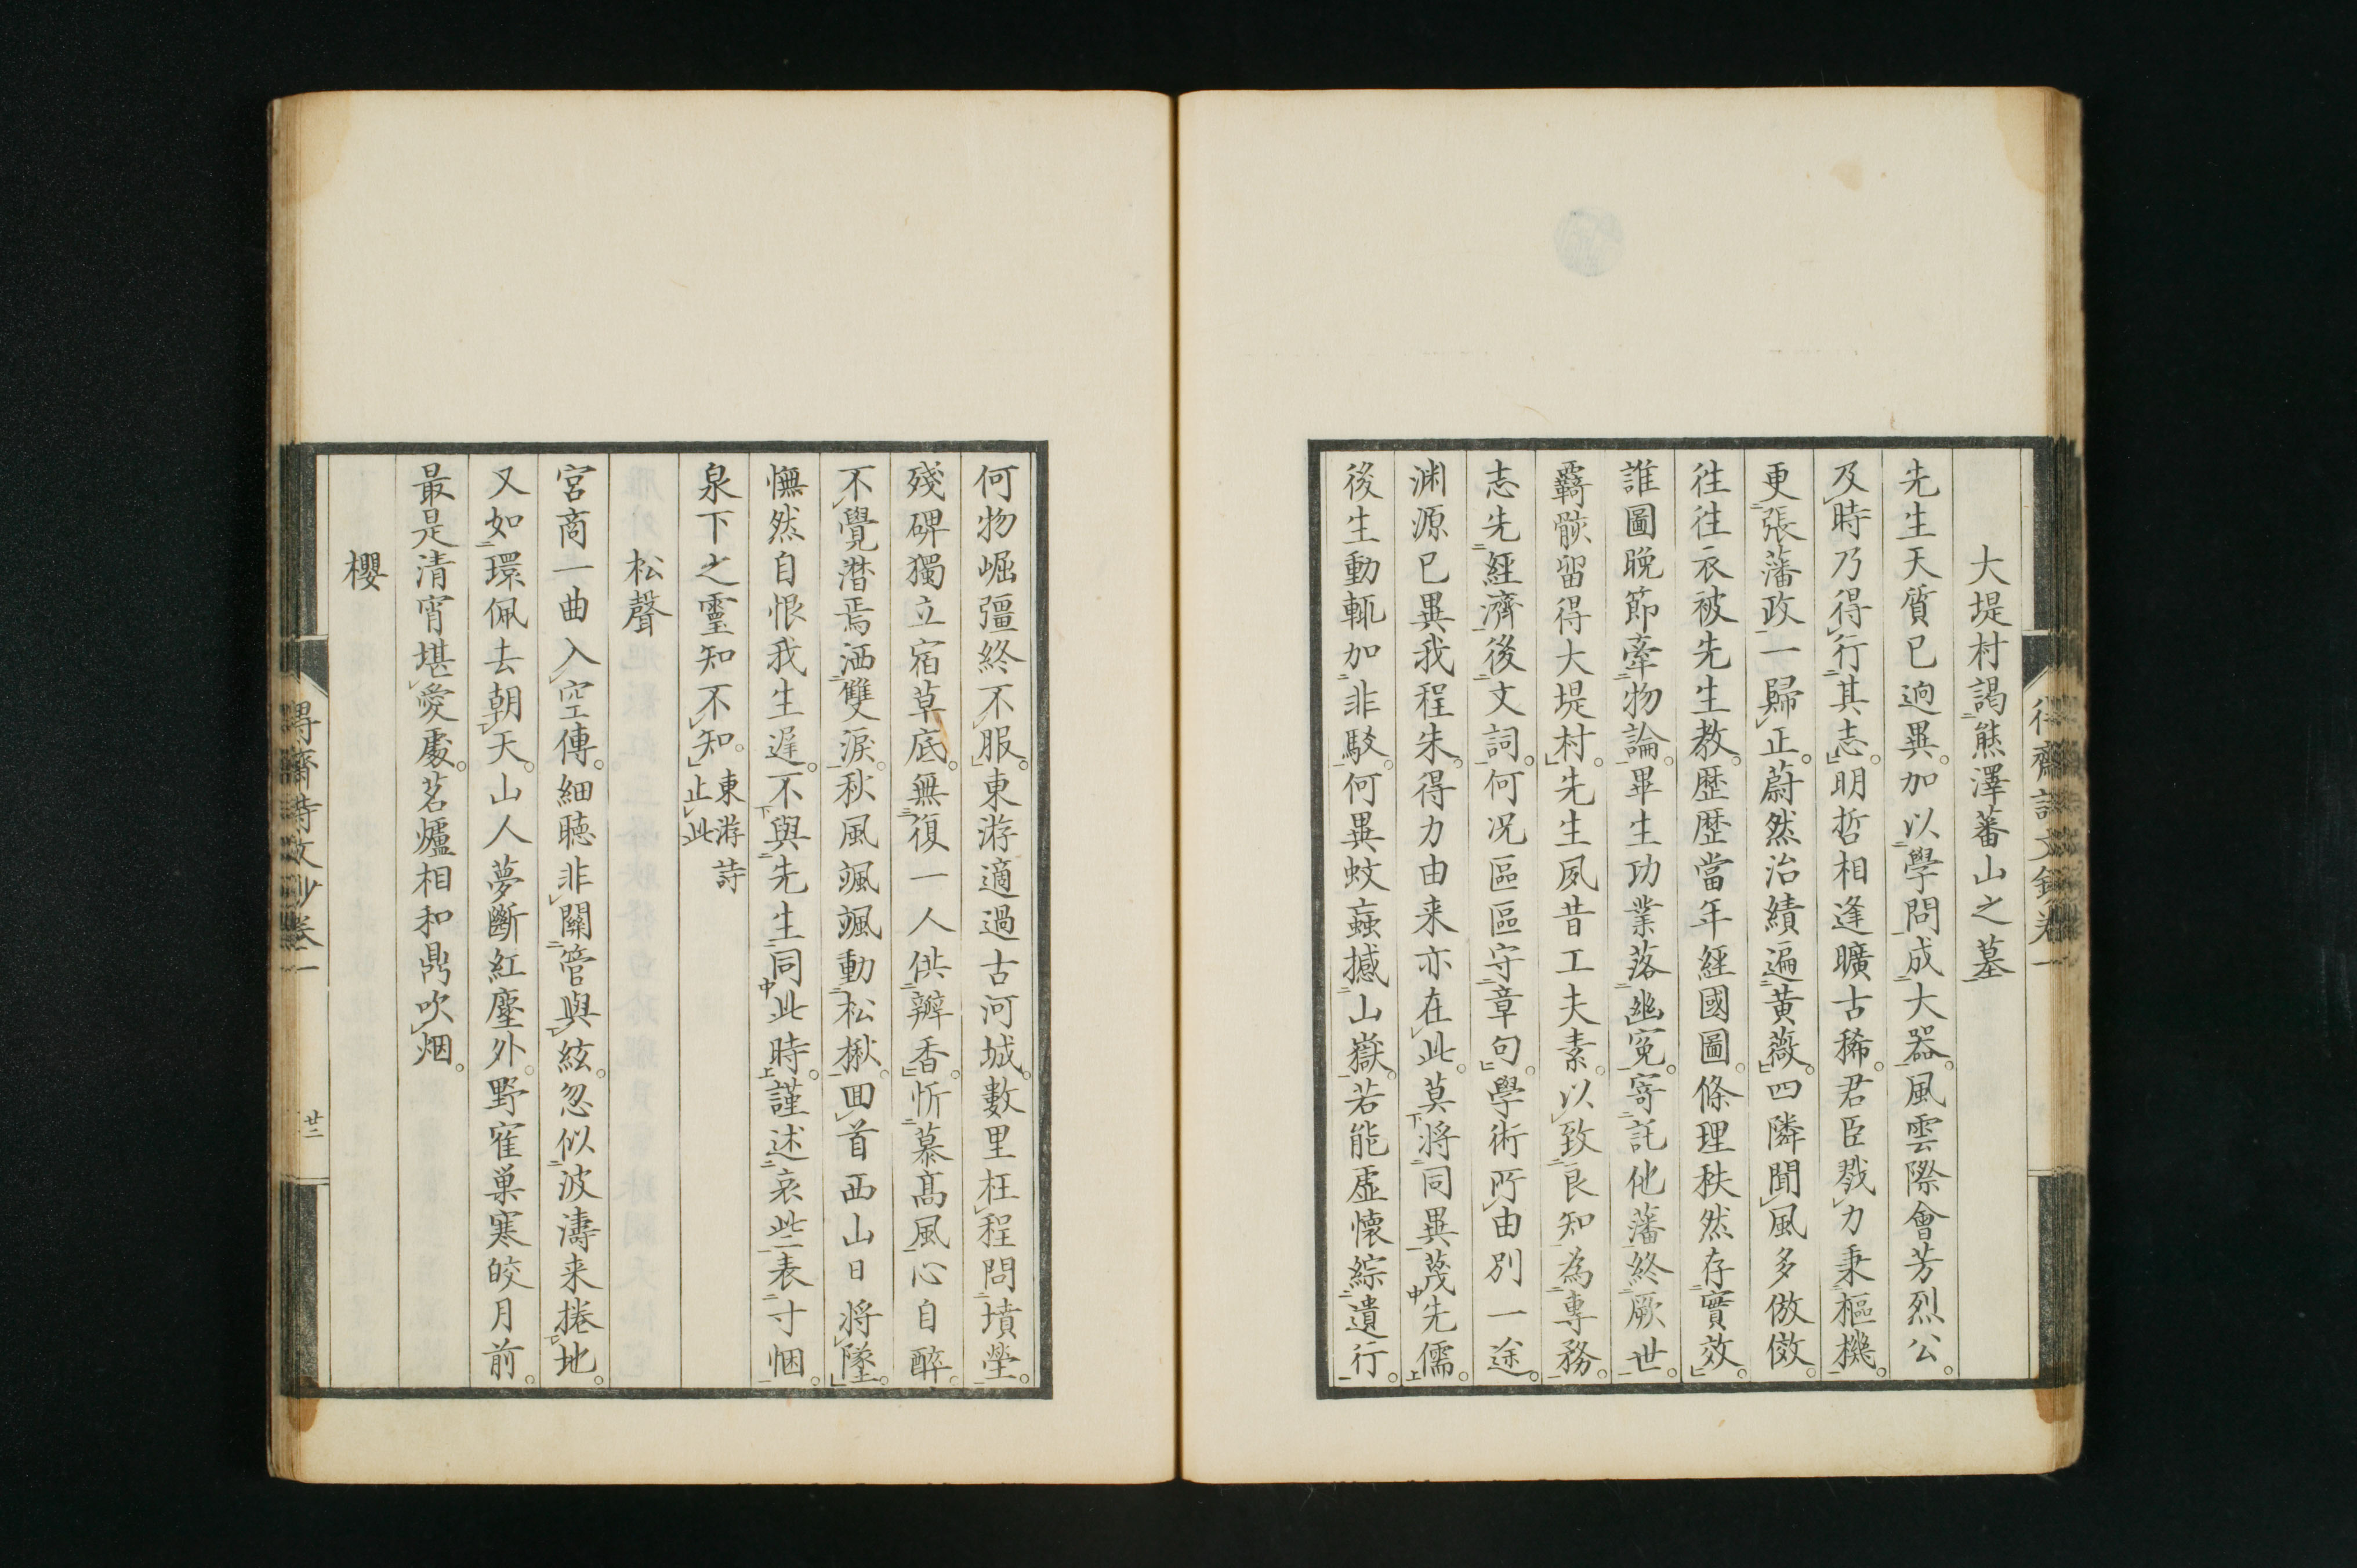 大堤村謁熊澤蕃山之墓
先生天質已逈異。加以學問成大器。風雲際會芳烈公。
及時乃得行其志。明哲相逢曠古稀。君臣戮力秉樞機。
更張藩政一歸正。蔚然治績遍黄薇。四隣聞風多倣傚。
往往衣被先生教。歴歴當年經國圖。條理秩然存實效。
誰圖晩節牽物論。畢生功業落幽寃。寄託他藩終厥世。
覊骸留得大堤村。先生夙昔工夫素。以致良知為專務。
志先經濟後文詞。何况區區守章句。學術所由別一途。
渊源已異我程朱。得力由来亦在此。莫將同異蔑先儒。
後生動輒加非駁。何異蚊蝱撼山嶽。若能虚懷綜遺行。
何物崛彊終不服。東游適過古河城。數里枉程問墳塋。
殘碑獨立宿草底。無復一人供瓣香。忻慕髙風心自醉。
不覺潛焉洒雙淚。秋風颯颯動松楸。回首西山日將墜。
憮然自恨我生遅。不與先生同此時。謹述哀些表寸悃。
泉下之靈知不知。東游詩止此
松聲
宮商一曲入空傳。細聴非關管與絃。忽似波濤来捲地。
又如環佩去朝天。山人夢斷紅塵外。野寉巣寒皎月前。
最是清宵堪愛處。茗爐相和鼎吹烟。
櫻
淂齋詩文鈔卷一
廿二